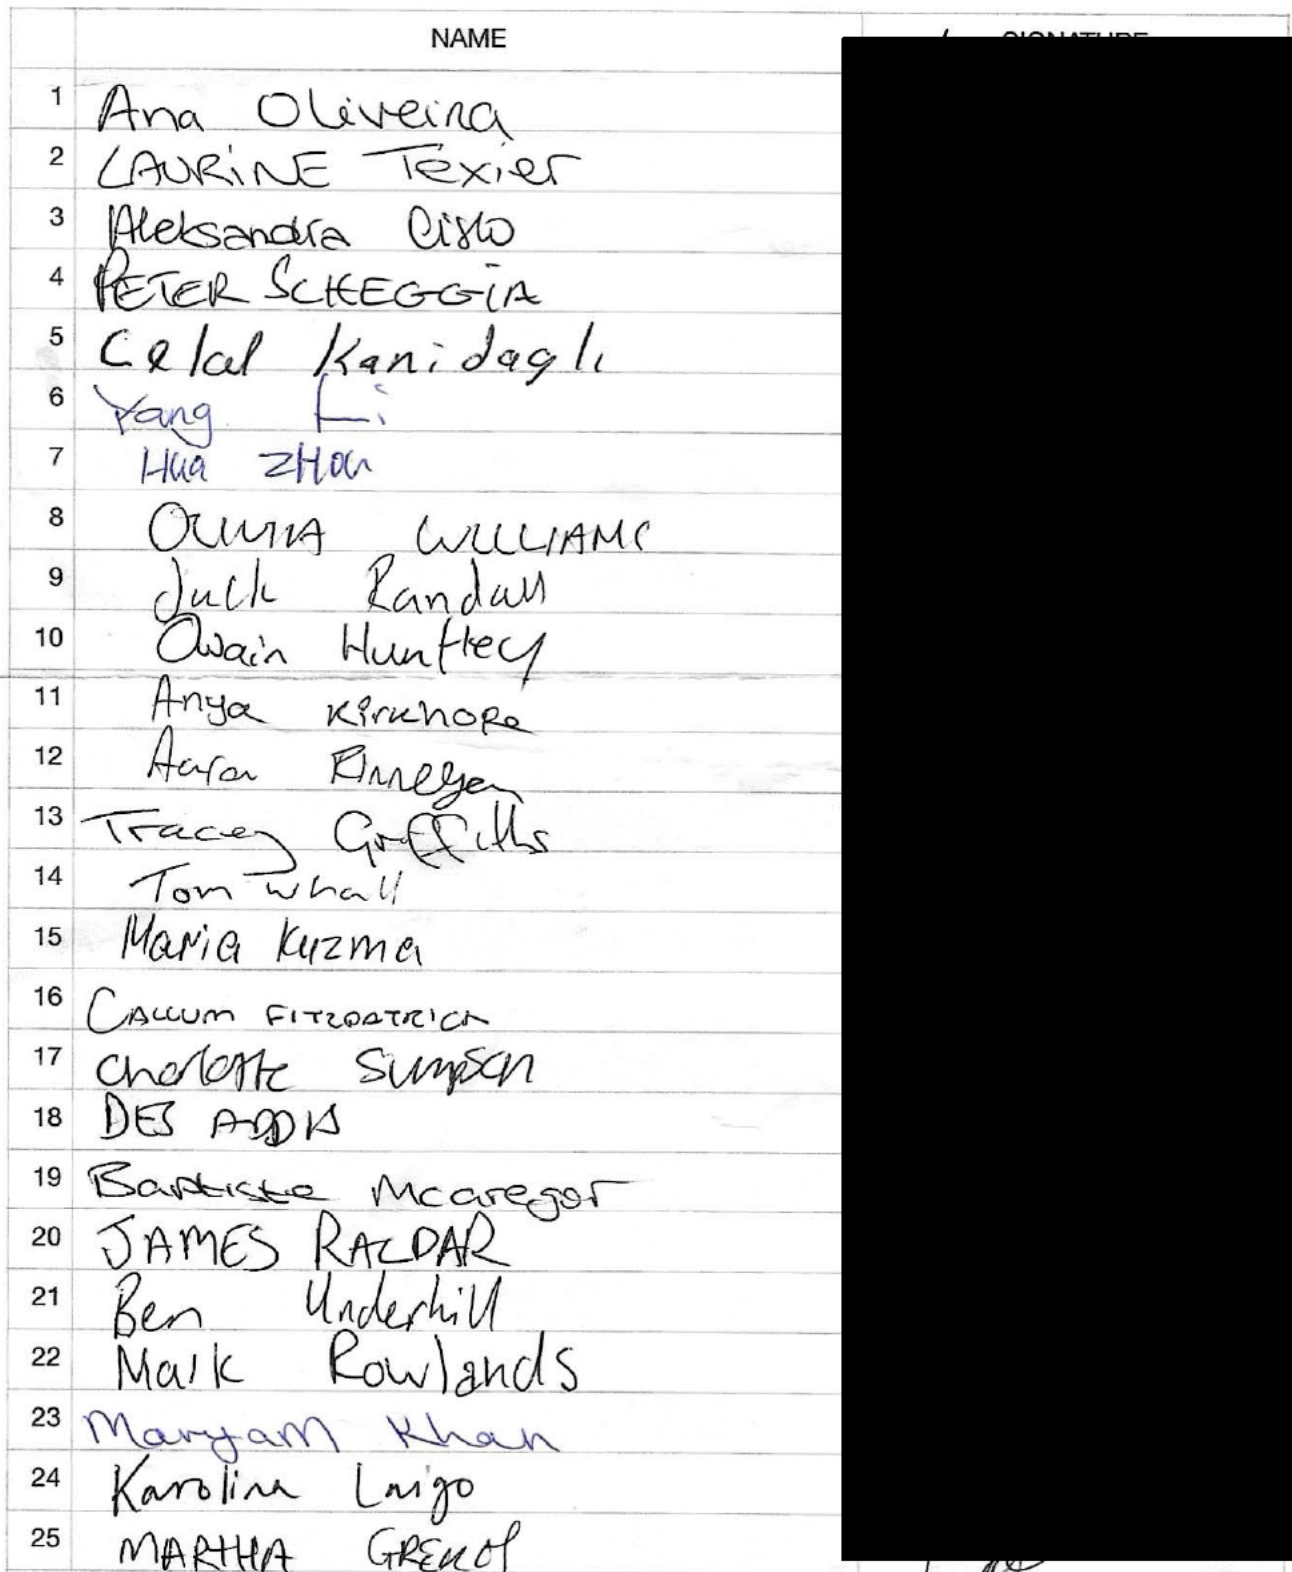 NAME SIGNATURE
1 Ana Oliveira
2 LAURINE Texier
3 Aleksandra Cislo
4 PETER SCHEGGIA
5 Celal Kanidagli
6 Yang Li
7 Hua ZHou
8 OLIVIA WILLIAMS
9 Jack Randall
10 Owain Huntley
11 Anya Kirkhope
12 Aaron Finnegan
13 Tracey Griffiths
14 Tom Whall
15 Maria Kuzma
16 CALLUM FITZPATRICK
17 Charlotte Simpson
18 DES ADDIS
19 Baptiste McGregor
20 JAMES
21 Ben Underhill
22 Mark Rowlands
23 Maryam Khan
24 Karolina
25 MARTHA